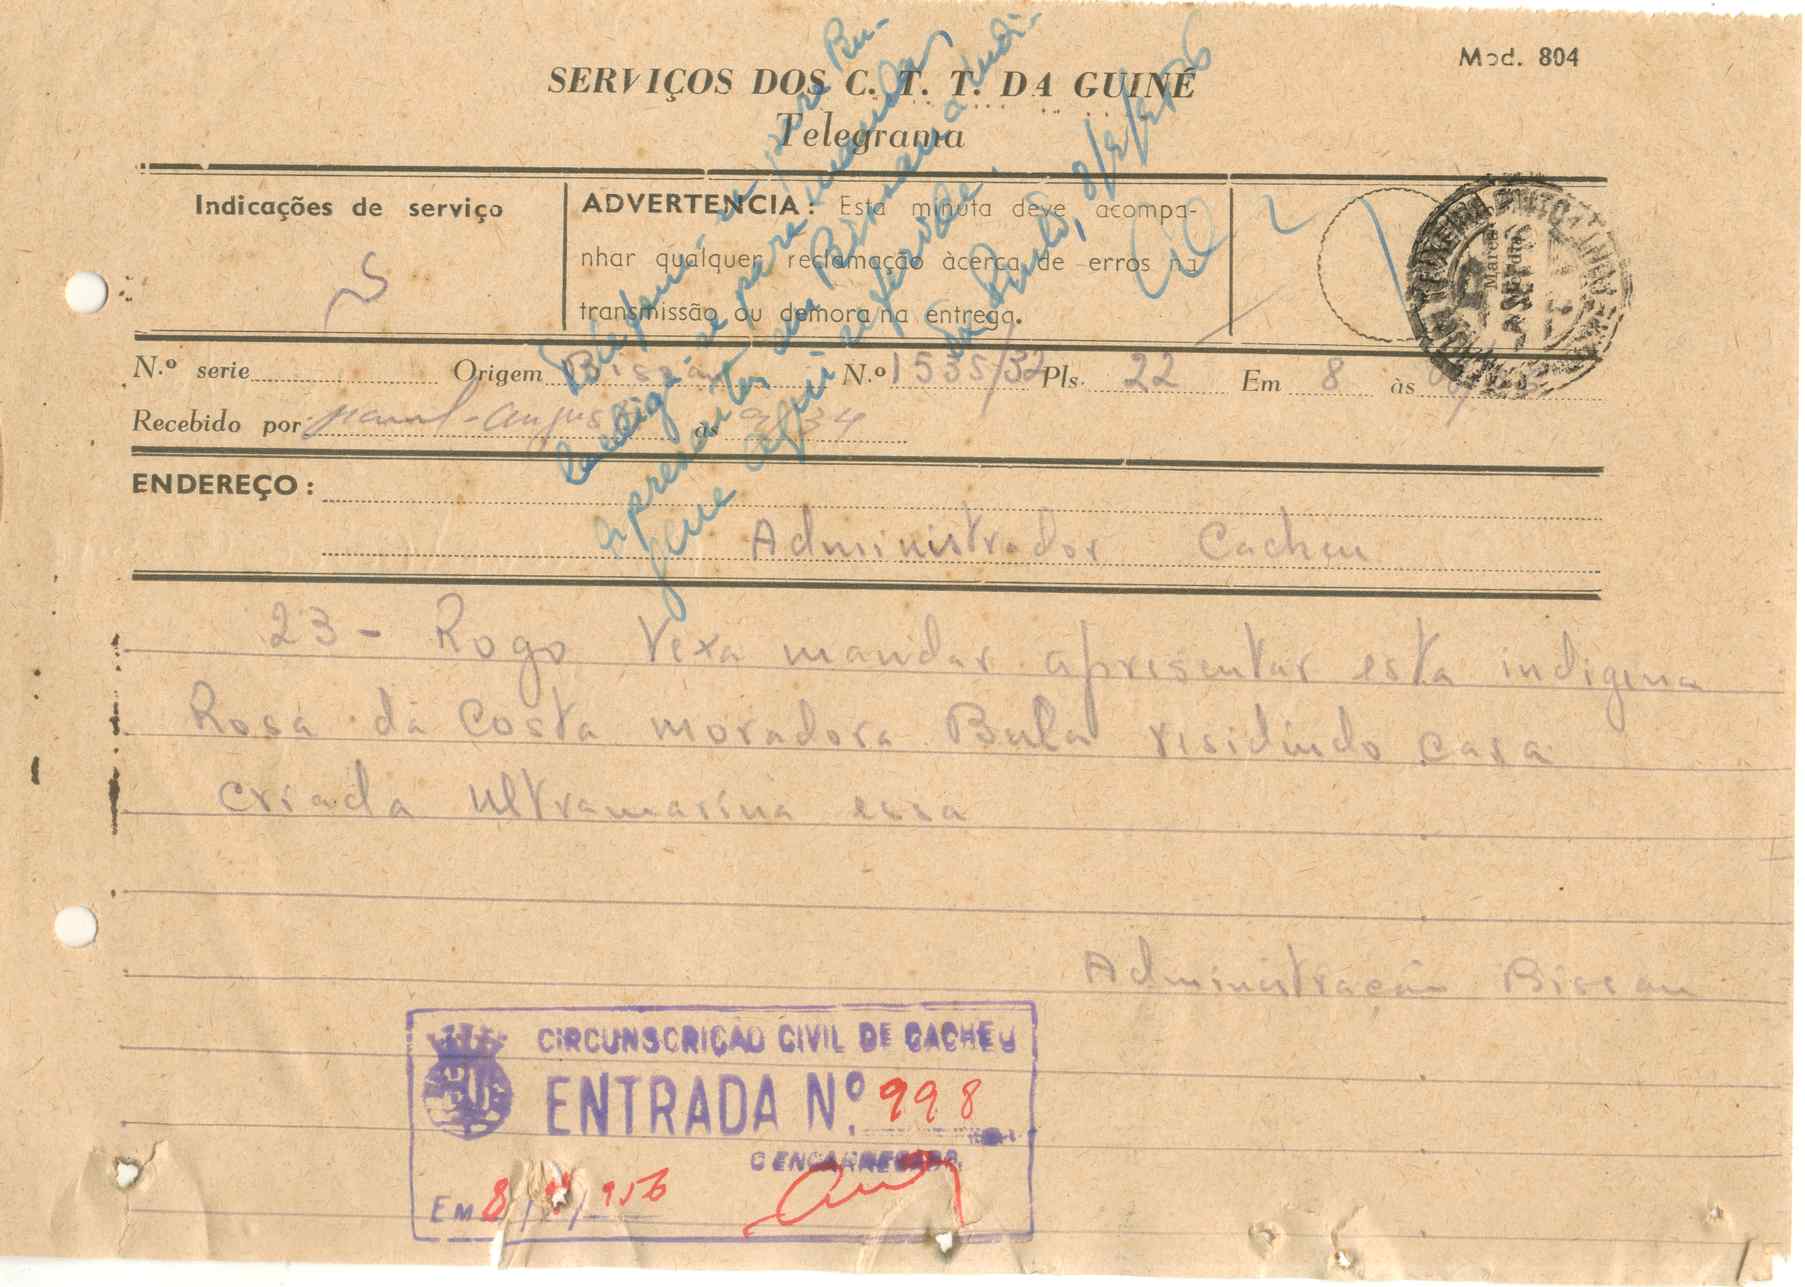 Mod. 804
SERVIÇOS DOS C. T. T. DA GUINÉ
Telegrama
Indicações de serviço
S
ADVERTENCIA: Esta minuta deve acompa-
nhar qualquer reclamação àcerca de erros na
transmissão ou demora na entrega.
Telefone-se para Bu-
la
apresentar em Bissau a indi-
gena aqui referida.
8/2/956
N.º serie Origem Bissau N.º 1535/32 Pls. 22 Em 8 às
Recebido por às 9,34
ENDEREÇO:
Administrador Cacheu
23 - Rogo Vexa mandar apresentar esta indigena
Rosa da Costa moradora Bula residindo casa
criada ultramarina essa
Administração Bissau
CIRCUNSCRIÇÃO CIVIL DE CACHEU
ENTRADA N.º 998
O ENCARREGADO,
EM 8 / / 956